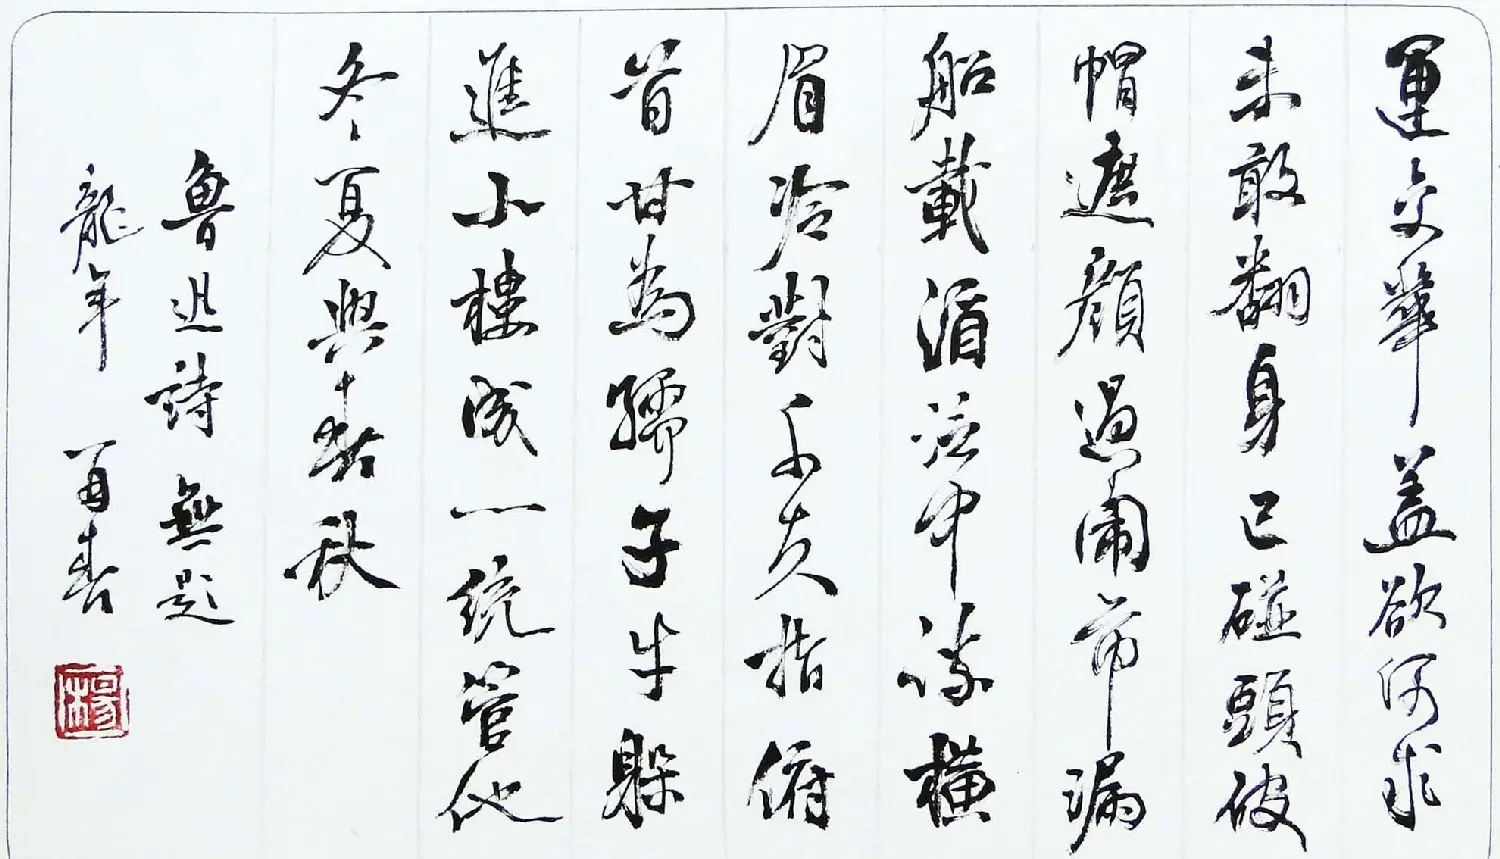 運交華盖欲何求
未敢翻身已碰頭破
帽遮顏過鬧市漏
船載酒泛中流橫
眉冷對千夫指俯
首甘為孺子牛躲
進小樓成一統管他
冬夏與春秋
魯迅詩 無題
龍年 春
楊